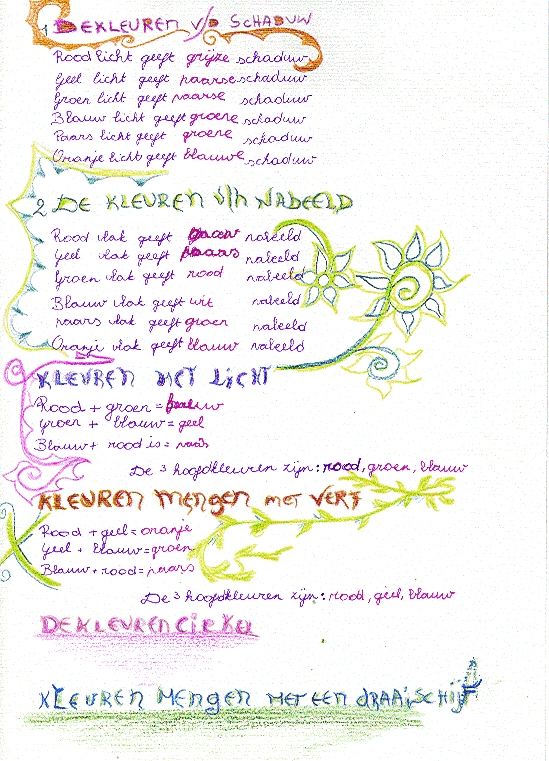 1 DE KLEUREN V/D SCHADUW
Rood licht geeft grijze schaduw
Geel licht geeft paarse schaduw
Groen licht geeft paarse schaduw
Blauw licht geeft groene schaduw
Paars licht geeft groene schaduw
Oranje licht geeft blauwe schaduw
2 DE KLEUREN V/H NABEELD
Rood vlak geeft nabeeld
Geel vlak geeft paars nabeeld
Groen vlak geeft rood nabeeld
Blauw vlak geeft wit nabeeld
paars vlak geeft groen nabeeld
Oranje vlak geeft blauw nabeeld
KLEUREN MET LICHT
Rood + groen =
Groen + blauw = geel
Blauw + rood is = paars
De 3 hoofdkleuren zijn: rood, groen, blauw
KLEUREN MENGEN MET VERF
Rood + geel = oranje
Geel + blauw = groen
Blauw + rood = paars
De 3 hoofdkleuren zijn: rood, geel, blauw
DE KLEURENCIRKEL
KLEUREN MENGEN MET EEN DRAAISCHIJF